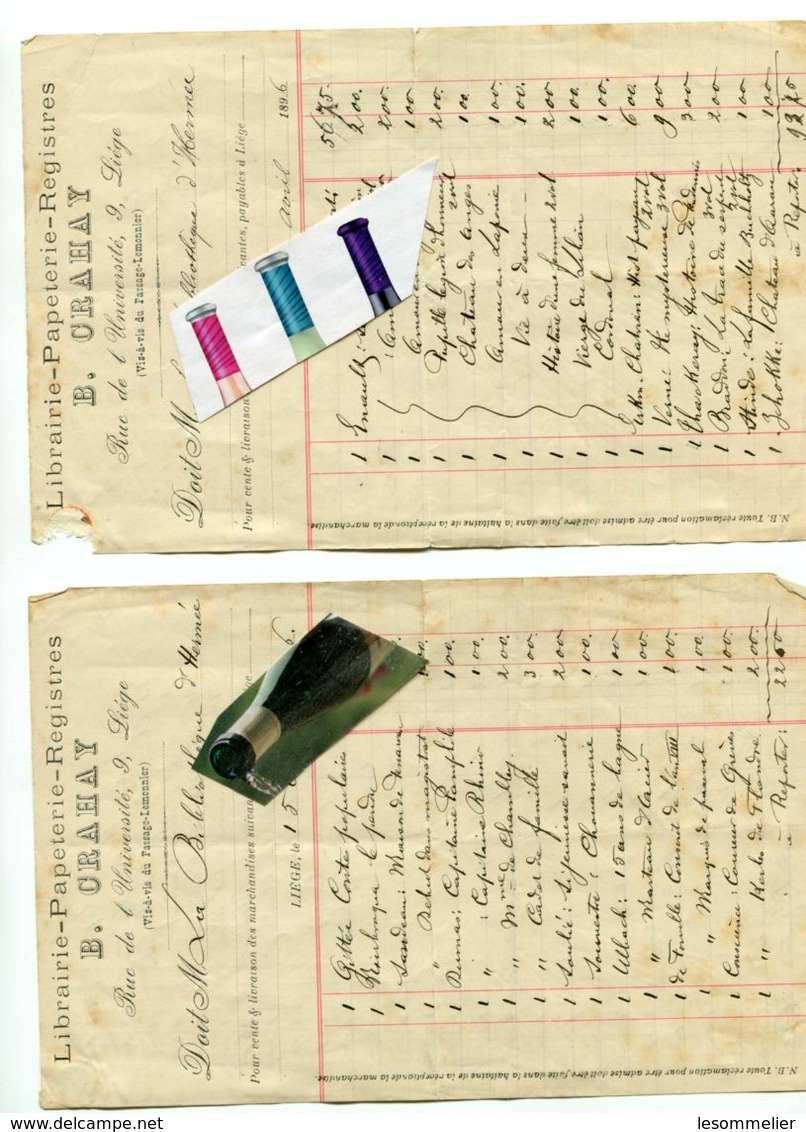 Librairie-Papeterie-Registres
B. CRAHAY
Rue de l'Université, 9, Liége
(Vis-à-vis du Passage-Lemonnier)
Doit M
bliothèque d'Hermée
Pour vente & livraison
vantes, payables à Liége
avril 1896
56.75
1 Enault: 2 00
1 2 00
1 Amour en 1 00
1 Pupille légion d'honneur 2 vol 2 00
1 Château des anges 1 00
1 Amour en Laponie 1 00
1 Vie à deux 1 00
1 Histoire d'une femme 2 vol 2 00
1 Vierge du Liban 1 00
1 Cordoval 1 00
1 Erkm. Chatrian: Hist paysant 2 vol 6 00
1 Verne: Ile mystérieuse 3 vol 9 00
1 Thackeray: Histoire de 3 00
1 Braddon: La trace du serpent 2 vol 2 00
1 Stinde: La famille Buchholz 1 00
1 Zhokke: Chateau d'Aarau 1 00
à Reporter 93 75
N. B. Toute réclamation pour être admise doit être faite dans la huitaine de la réception de la marchandise.
Librairie-Papeterie-Registres
B. CRAHAY
Rue de l'Université, 9, Liége
(Vis-à-vis du Passage-Lemonnier)
Doit M La Bibliothèque d'Hermée
Pour vente & livraison des marchandises suivan
LIÉGE, le 15 6.
1 Gittée Contes populaires
1 le pendu
1 Sandeau: Maison de Penarvan
1 " Début dans magistrat 1 00
1 Dumas: Capitaine Pamphile 1 00
1 " : Capitaine Rhino 1 00
1 " Mme de Chamblay 2 00
1 " Cadet de famille 3 00
1 Soulié: Si jeunesse savait 2 00
1 Souvestre: Chouannerie 1 00
1 Ulbach: 15 ans de bagne 1 00
1 " Marteau d'acier 1 00
1 de Fonville: Conscrit de l'an VIII 1 00
1 " Marquis de 1 00
1 Conscience: Coureur de Grèves 1 00
1 " Kerles de Flandre 2 00
à Reporter: 22 50
N. B. Toute réclamation pour être admise doit être faite dans la huitaine de la réception de la marchandise.
www.delcampe.net
lesommelier